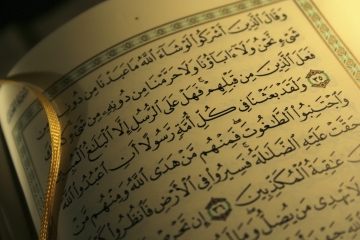 وَقَالَ ٱلَّذِينَ أَشْرَكُوا۟ لَوْ شَآءَ ٱللَّهُ مَا عَبَدْنَا مِن دُونِهِۦ مِن
شَىْءٍ نَّحْنُ وَلَآ ءَابَآؤُنَا وَلَا حَرَّمْنَا مِن دُونِهِۦ مِن شَىْءٍ
فَعَلَ ٱلَّذِينَ مِن قَبْلِهِمْ فَهَلْ عَلَى ٱلرُّسُلِ إِلَّا ٱلْبَلَٰغُ ٱلْمُبِينُ
٣٥ وَلَقَدْ بَعَثْنَا فِى كُلِّ أُمَّةٍ رَّسُولًا أَنِ ٱعْبُدُوا۟ ٱللَّهَ
وَٱجْتَنِبُوا۟ ٱلطَّٰغُوتَ فَمِنْهُم مَّنْ هَدَى ٱللَّهُ وَمِنْهُم مَّنْ
حَقَّتْ عَلَيْهِ ٱلضَّلَٰلَةُ فَسِيرُوا۟ فِى ٱلْأَرْضِ فَٱنظُرُوا۟
عَٰقِبَةُ ٱلْمُكَذِّبِينَ ٣٦ إِن تَحْرِصْ
لَا يَهْدِى مَن يُضِلُّ وَمَا لَهُم